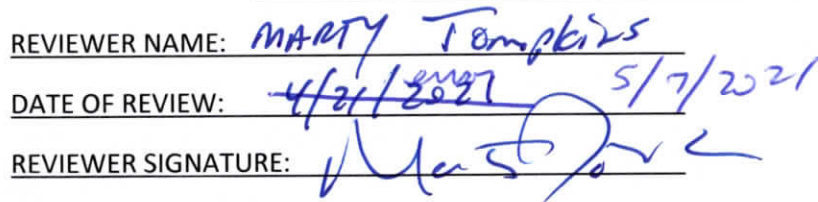 REVIEWER NAME: MARTY Tompkins
DATE OF REVIEW: 4/21/2021 error 5/7/2021
REVIEWER SIGNATURE: